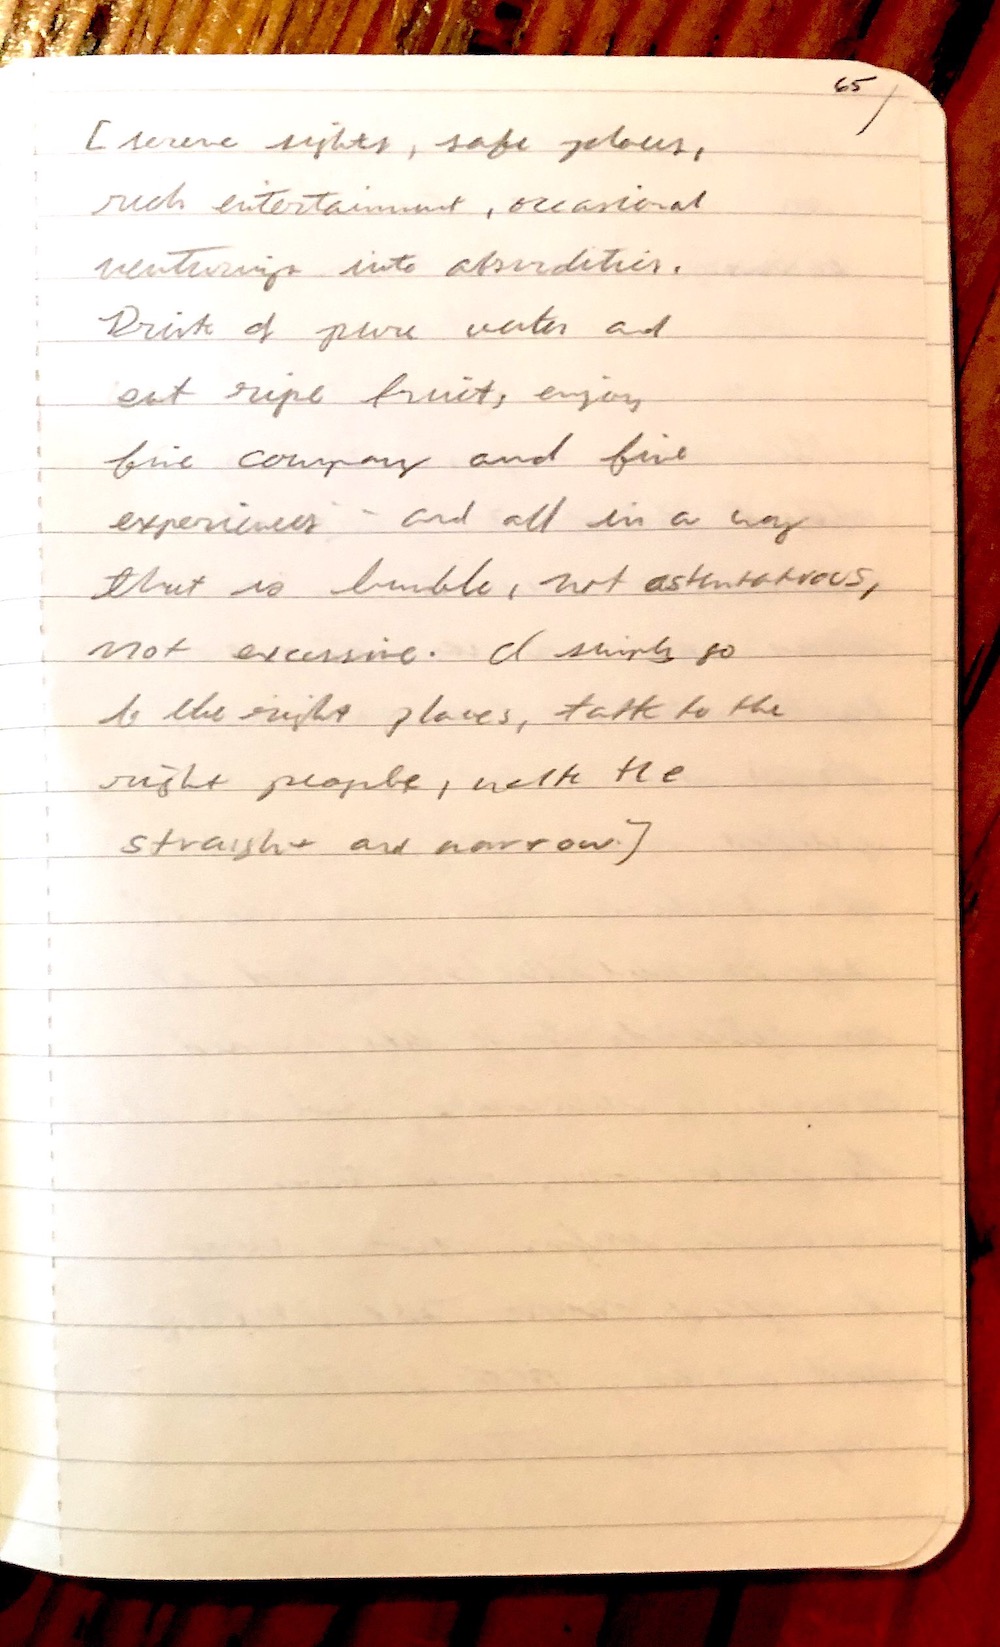 65
[serene sights, safe places,
rich entertainment, occasional
venturings into absurdities.
Drink of pure water and
eat ripe fruit, enjoy
fine company and fine
experiences - and all in a way
that is humble, not ostentatious,
not excessive. I simply go
to the right places, talk to the
right people, walk the
straight and narrow.]